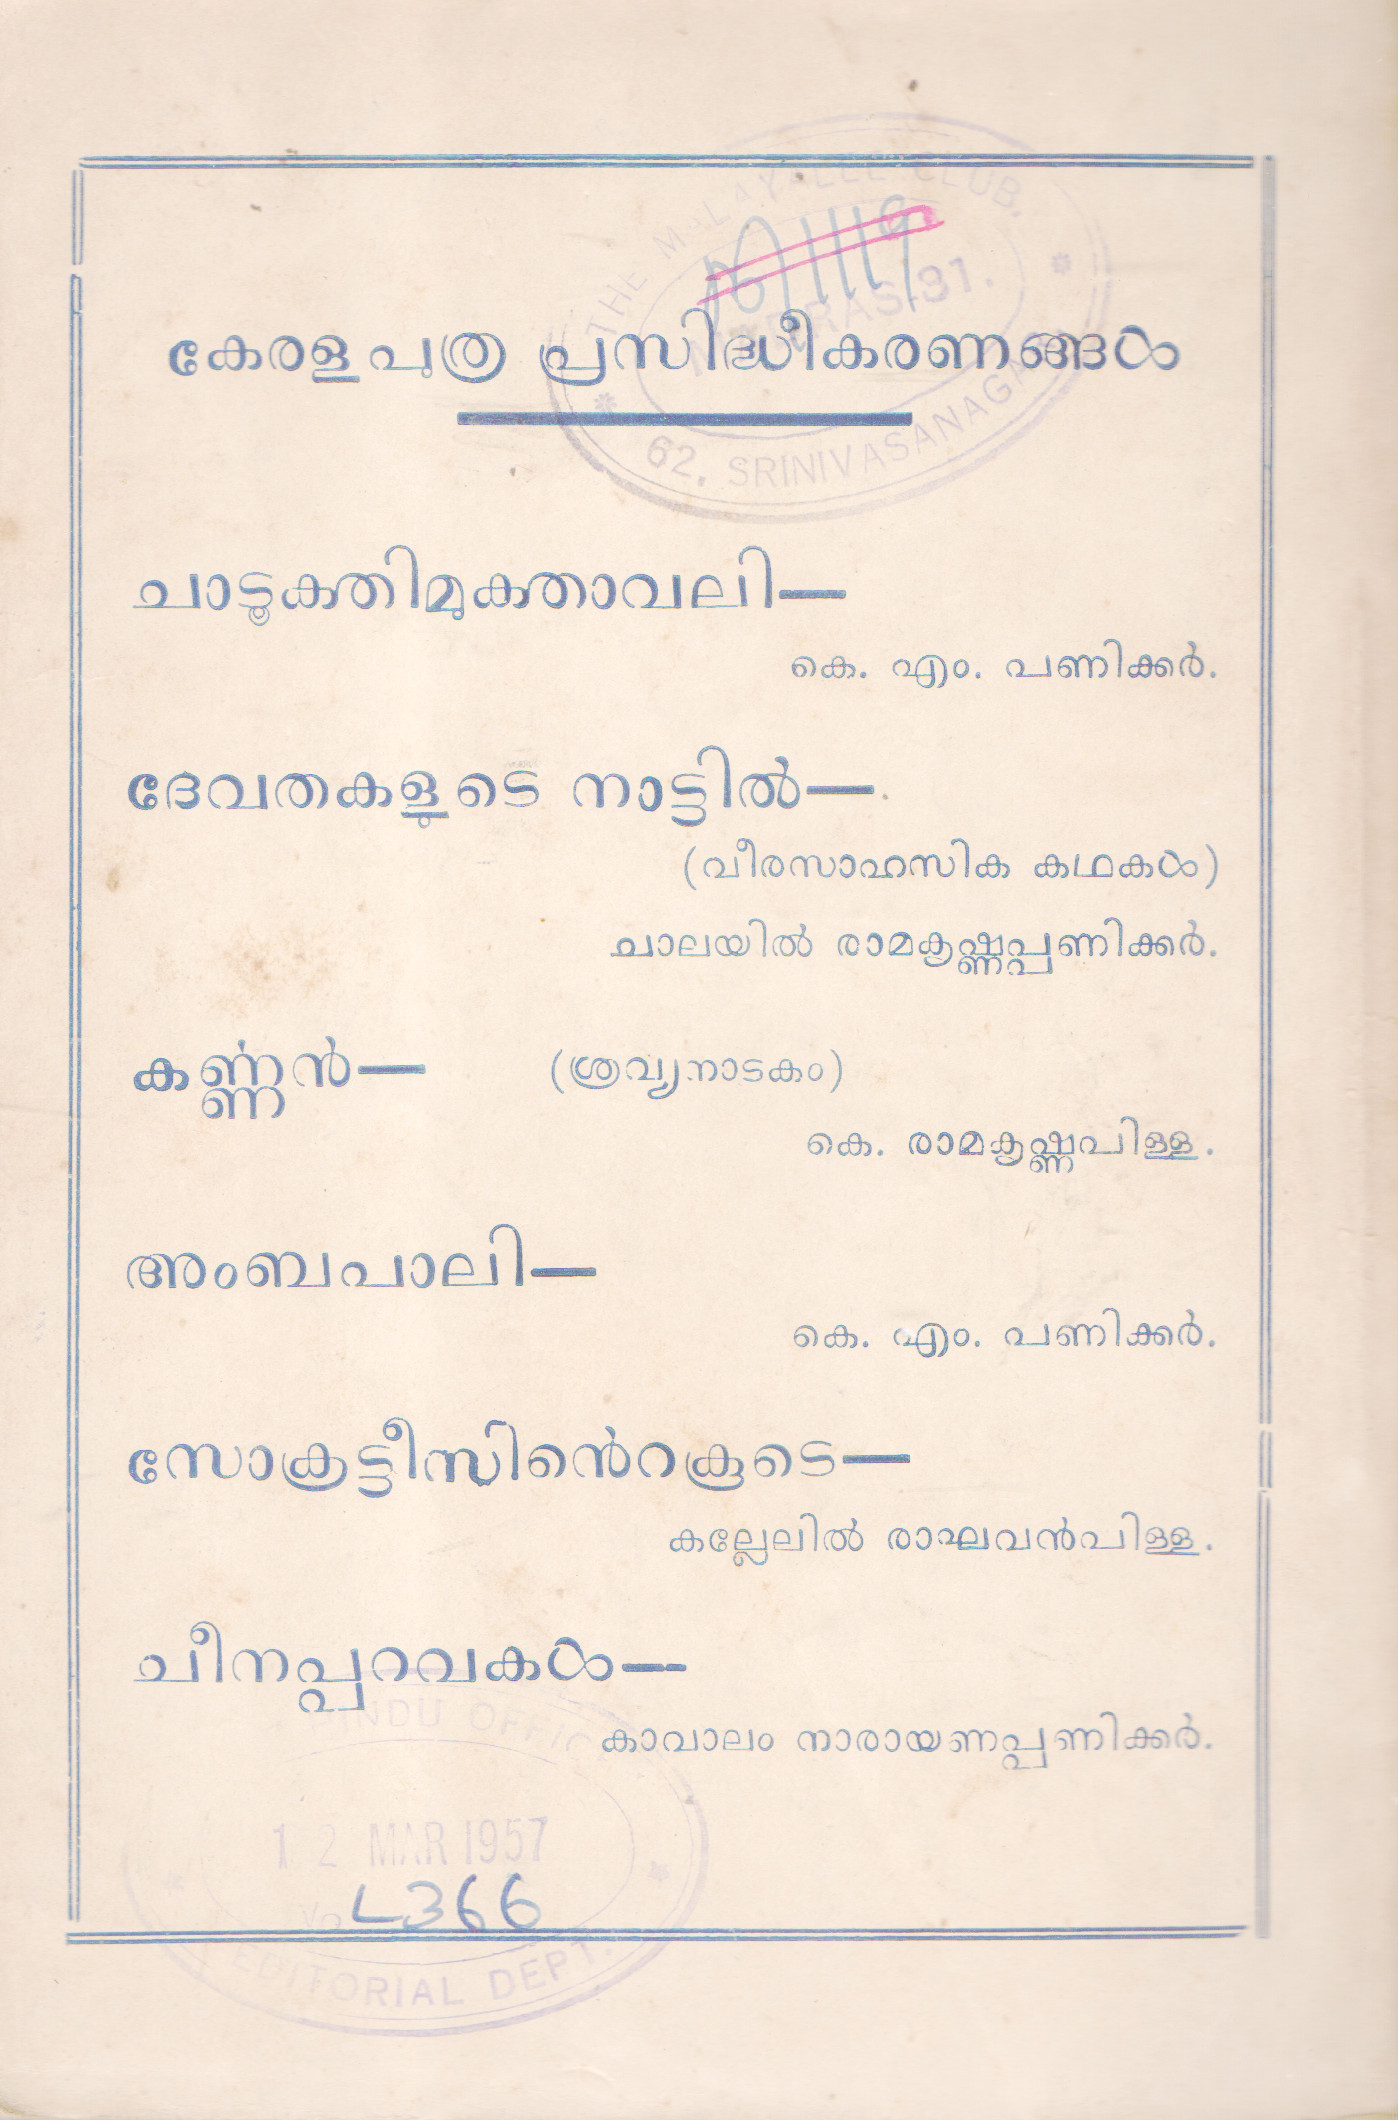 THE MALAYALEE CLUB,
MADRAS-31.
62, SRINIVASANAGAR
കേരളപുത്ര പ്രസിദ്ധീകരണങ്ങൾ
ചാടൂക്തിമുക്താവലി—
കെ. എം. പണിക്കർ.
ദേവതകളുടെ നാട്ടിൽ—
(വീരസാഹസിക കഥകൾ)
ചാലയിൽ രാമകൃഷ്ണപ്പണിക്കർ.
കണ്ണൻ— (ശ്രവ്യനാടകം)
കെ. രാമകൃഷ്ണപിള്ള.
അംബപാലി—
കെ. എം. പണിക്കർ.
സോക്രട്ടീസിൻെറകൂടെ—
കല്ലേലിൽ രാഘവൻപിള്ള.
ചീനപ്പറവകൾ—
കാവാലം നാരായണപ്പണിക്കർ.
HINDU OFFICE
12 MAR 1957
No L366
EDITORIAL DEPT.